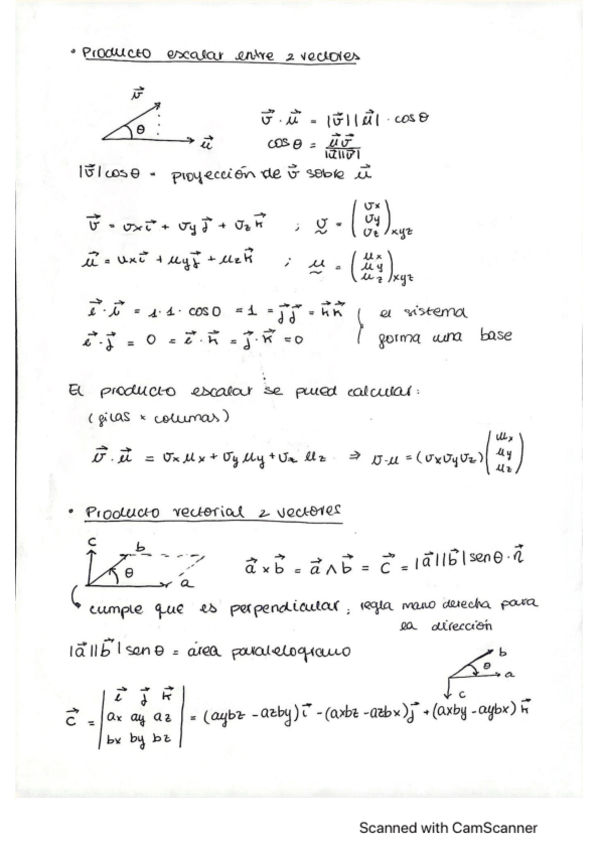 • Producto escalar entre 2 vectores
v⃗
θ
u⃗
v⃗ · u⃗ = |v⃗||u⃗| · cosθ
cosθ = u⃗v⃗ / |u⃗||v⃗|
|v⃗|cosθ = proyección de v⃗ sobre u⃗
v⃗ = vx i⃗ + vy j⃗ + vz k⃗ ; v = (vx vy vz)xyz
u⃗ = ux i⃗ + uy j⃗ + uz k⃗ ; u = (ux uy uz)xyz
i⃗ · i⃗ = 1·1· cos0 = 1 = j⃗j⃗ = k⃗k⃗ { el sistema
i⃗ · j⃗ = 0 = i⃗ · k⃗ = j⃗ · k⃗ = 0 forma una base
El producto escalar se pued calcular:
(filas × columnas)
v⃗ · u⃗ = vx ux + vy uy + vz uz ⇒ v·u = (vx vy vz)(ux uy uz)
• Producto vectorial 2 vectores
c
b
θ
a
a⃗ × b⃗ = a⃗ ∧ b⃗ = c⃗ = |a⃗||b⃗| senθ · n⃗
cumple que es perpendicular, regla mano derecha para
la dirección
|a⃗||b⃗| senθ = área paralelogramo
b
θ
a
c
c⃗ = | i⃗ j⃗ k⃗ |
ax ay az
bx by bz
= (aybz - azby) i⃗ - (axbz - azbx) j⃗ + (axby - aybx) k⃗
Scanned with CamScanner